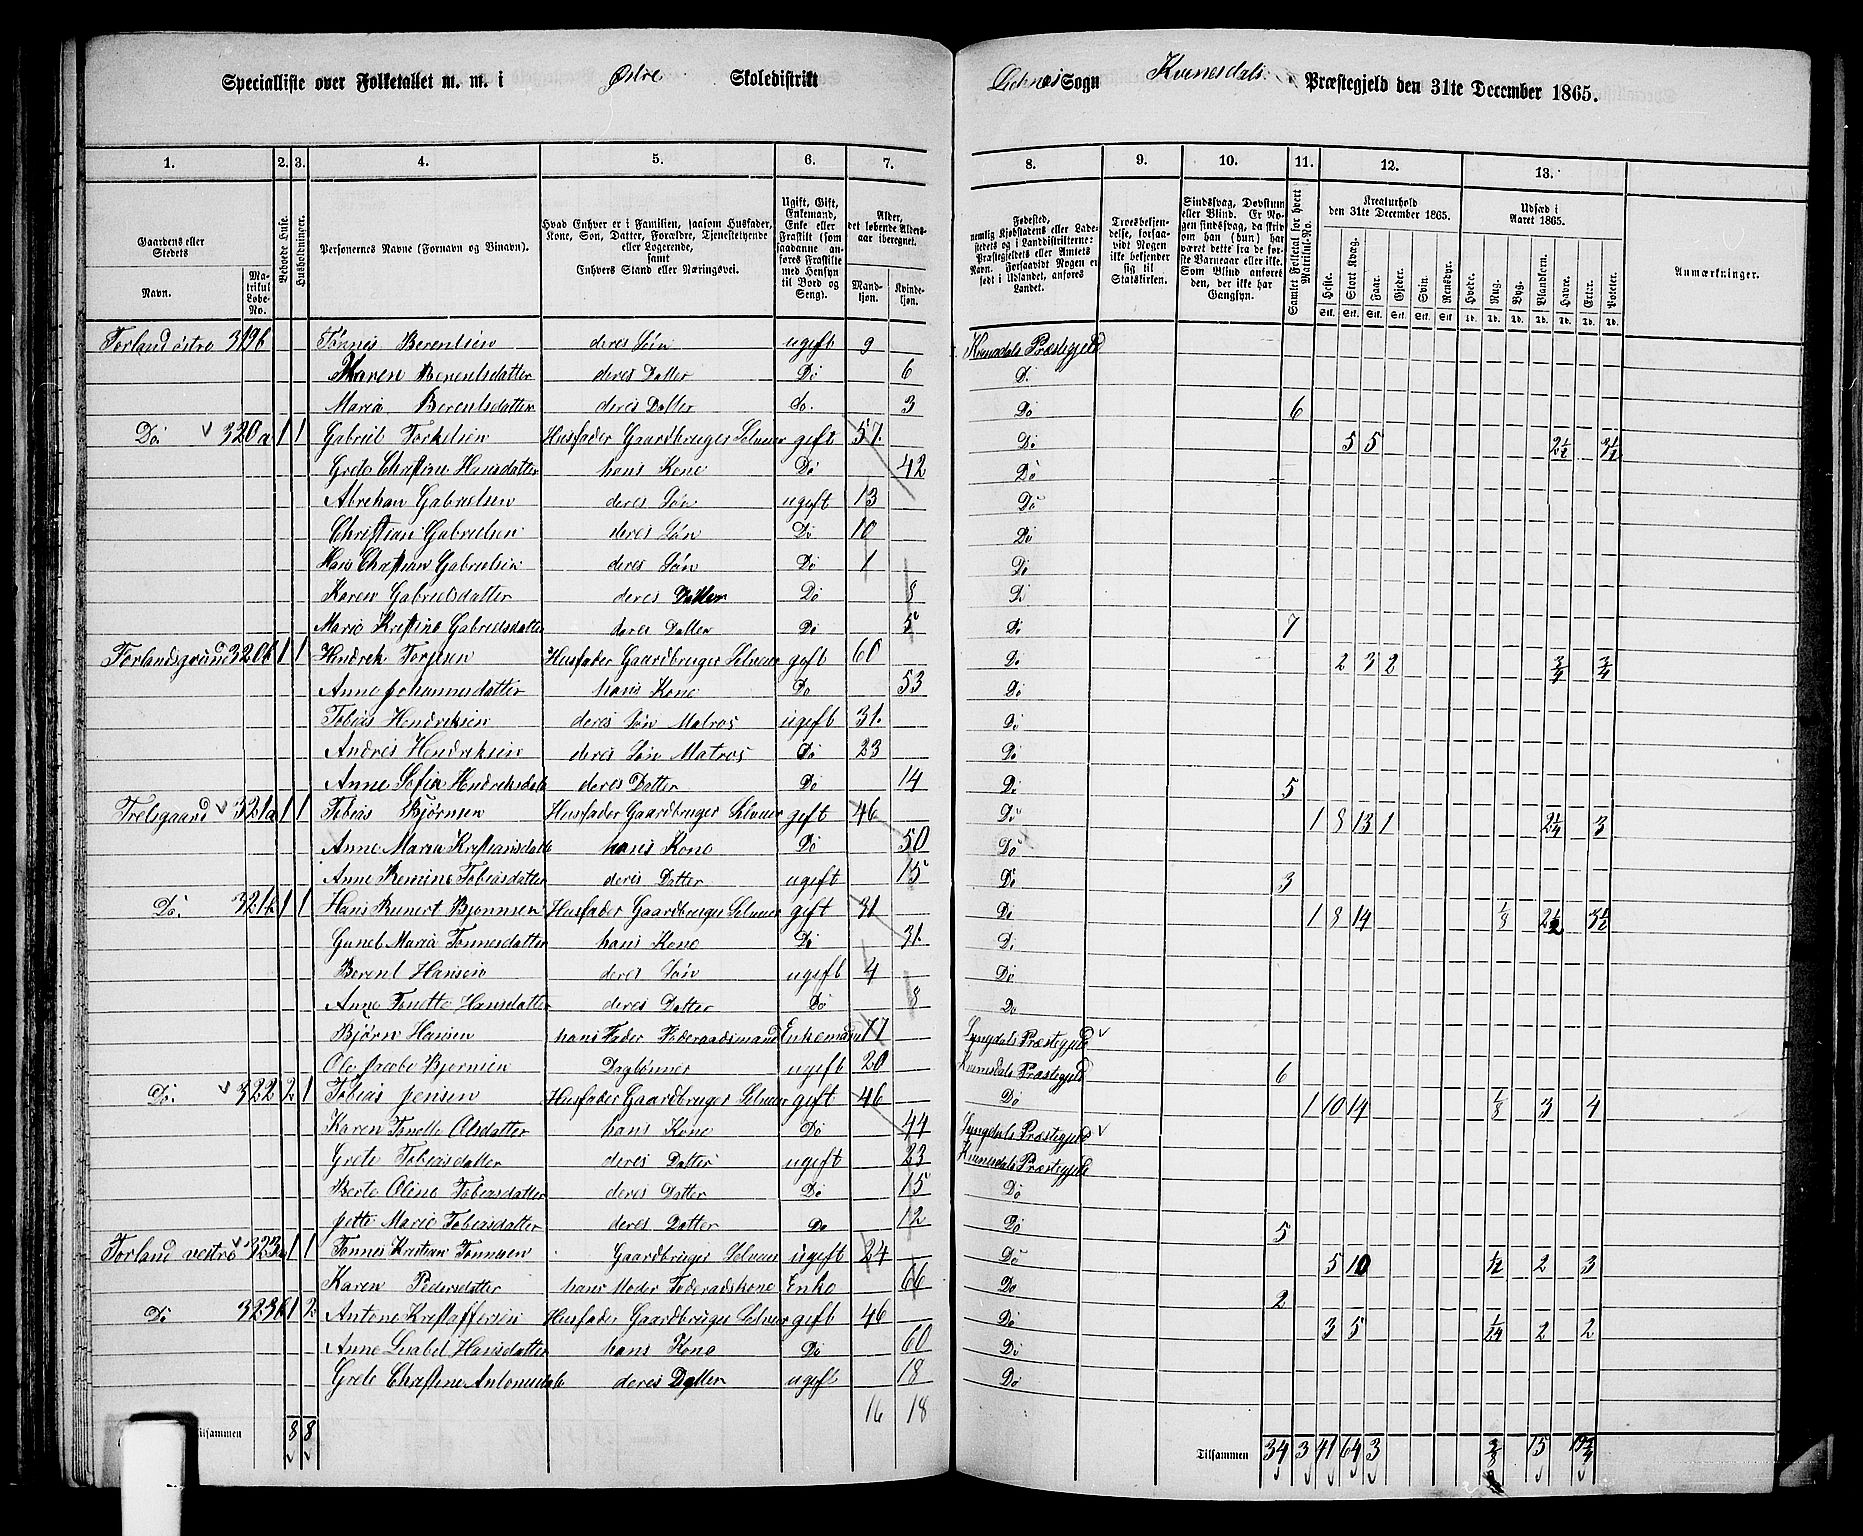 Specialliste over Folketallet m. m. i Østre Skoledistrikt
Sogn Kvinesdals Præstegjeld den 31te December 1865.
1. 2. 3. 4. 5. 6. 7. 8. 9. 10. 11. 12. 13.
Gaardens eller Stedets Navn. Matrikul Løbe-No.
Beboede Huse.
Husholdninger.
Personernes Navne (Fornavn og Binavn).
Hvad Enhver er i Familien, saasom Husfader, Kone, Søn, Datter, Forældre, Tjenestetyende eller Logerende, samt Enhvers Stand eller Næringsvei.
Ugift, Gift, Enkemand, Enke eller Fraskilt (som saadanne anføres Fraskilte med Hensyn til Bord og Seng).
Alder, det løbende Alders-aar iberegnet. Mandkjøn. Kvindekjøn.
Fødested, nemlig Kjøbstadens eller Ladestedets og i Landdistrikterne: Præstegjeldets eller Amtets Navn. Forsaavidt Nogen er født i Udlandet, anføres Landet.
Troesbekjendelse, forsaavidt Nogen ikke bekjender sig til Statskirken.
Sindssvag, Døvstum eller Blind. Er Nogen sindssvag, da skriv om han (hun) har været dette fra de første Barneaar eller ikke. Som Blind anføres den, der ikke har Gangsyn.
Samlet Folketal for hvert Matrikul-No.
Kreaturhold den 31te December 1865.
Heste. Stort Kvæg. Faar. Gjeder. Svin. Rensdyr.
Udsæd i Aaret 1865.
Hvede. Rug. Byg. Blandkorn. Havre. Erter. Poteter.
Anmærkninger.
Forland østre 319b Tønnes Berentsen deres Søn ugift 9 Kvinesdals Præstegjeld
Karen Berentsdatter deres Datter Do 6 Do
Maria Berentsdatter deres Datter do. 3 Do 6
Do 320a 1 1 Gabriel Torkelsen Husfader Gaardbruger Selveier gift 57 Do 5 5 2½ 3½
Grete Christine Hansdatter hans Kone Do 42 Do
Abreham Gabrielsen deres Søn ugift 13 Do
Christian Gabrielsen deres Søn Do 10 Do
Hans Christian Gabrielsen deres Søn Do 1 Do
Karen Gabrielsdatter deres Datter Do 8 Do
Marie Kristine Gabrielsdatter deres Datter Do 5 Do 7
Forlandsgrund 320b 1 1 Hendrik Torjesen Husfader Gaardbruger Selveier gift 60 Do 2 3 2 ¾ ¾
Anne Johannesdatter hans Kone Do 53 Do
Tobias Hendriksen deres Søn Matros ugift 31. Do
Andres Hendriksen deres Søn Matros Do 23 Do
Anne Sofia Hendriksdatt deres Datter Do 14 Do 5
Trelsgaard 321a 1 1 Tobias Bjørnsen Husfader Gaardbruger Selveier gift 46 Do 1 8 13 1 2¼ 3
Anne Maria Kristiansdatt hans Kone Do 50 Do
Anne Bernine Tobiasdatter deres Datter ugift 15 Do 3
Do. 321b 1 1 Hans Bernert Bjørnsen Husfader Gaardbruger Selveier gift 31 Do 1 8 14 ⅛ 2½ 3½
Gunel Maria Tønnesdatter hans Kone Do 31. Do
Berent Hansen deres Søn ugift 4 Do
Anne Tonette Hansdatter deres Datter Do 8 Do
Bjørn Hansen hans Fader Føderaadsmand Enkemand 77 Lyngdals Præstegjeld
Ole Jacob Bjørnsen Daglønner ugift 20 Kvinesdals Præstegjeld 6
Do. 322 2 1 Tobias Jensen Husfader Gaardbruger Selveier gift 46 Do 1 10 14 ⅛ 3 4
Karen Tonette Olsdatter hans Kone Do 44 Lyngdals Præstegjeld
Grete Tobiasdatter deres Datter ugift 23 Kvinesdals Præstegjeld
Berte Oline Tobiasdatter deres Datter Do 15 Do
Jette Marie Tobiasdatter deres Datter Do 12 Do 5
Forland vestre 323a 1 1 Tønnes Kristian Tønnesen Gaardbruger Selveier ugift 24 Do 5 10 ½ 2 3
Karen Pedersdatter hans Moder Føderaadskone Enke 66 Do 2
Do 323b 1 2 Antone Kristaffersen Husfader Gaardbruger Selveier gift 46 Do 3 5 2 2
Anne Lisabet Hansdatter hans Kone Do 60 Do
Grete Christine Antonesdatt deres Datter ugift 18 Do
16 18
Tilsammen 8 8 Tilsammen 34 3 41 64 3 15